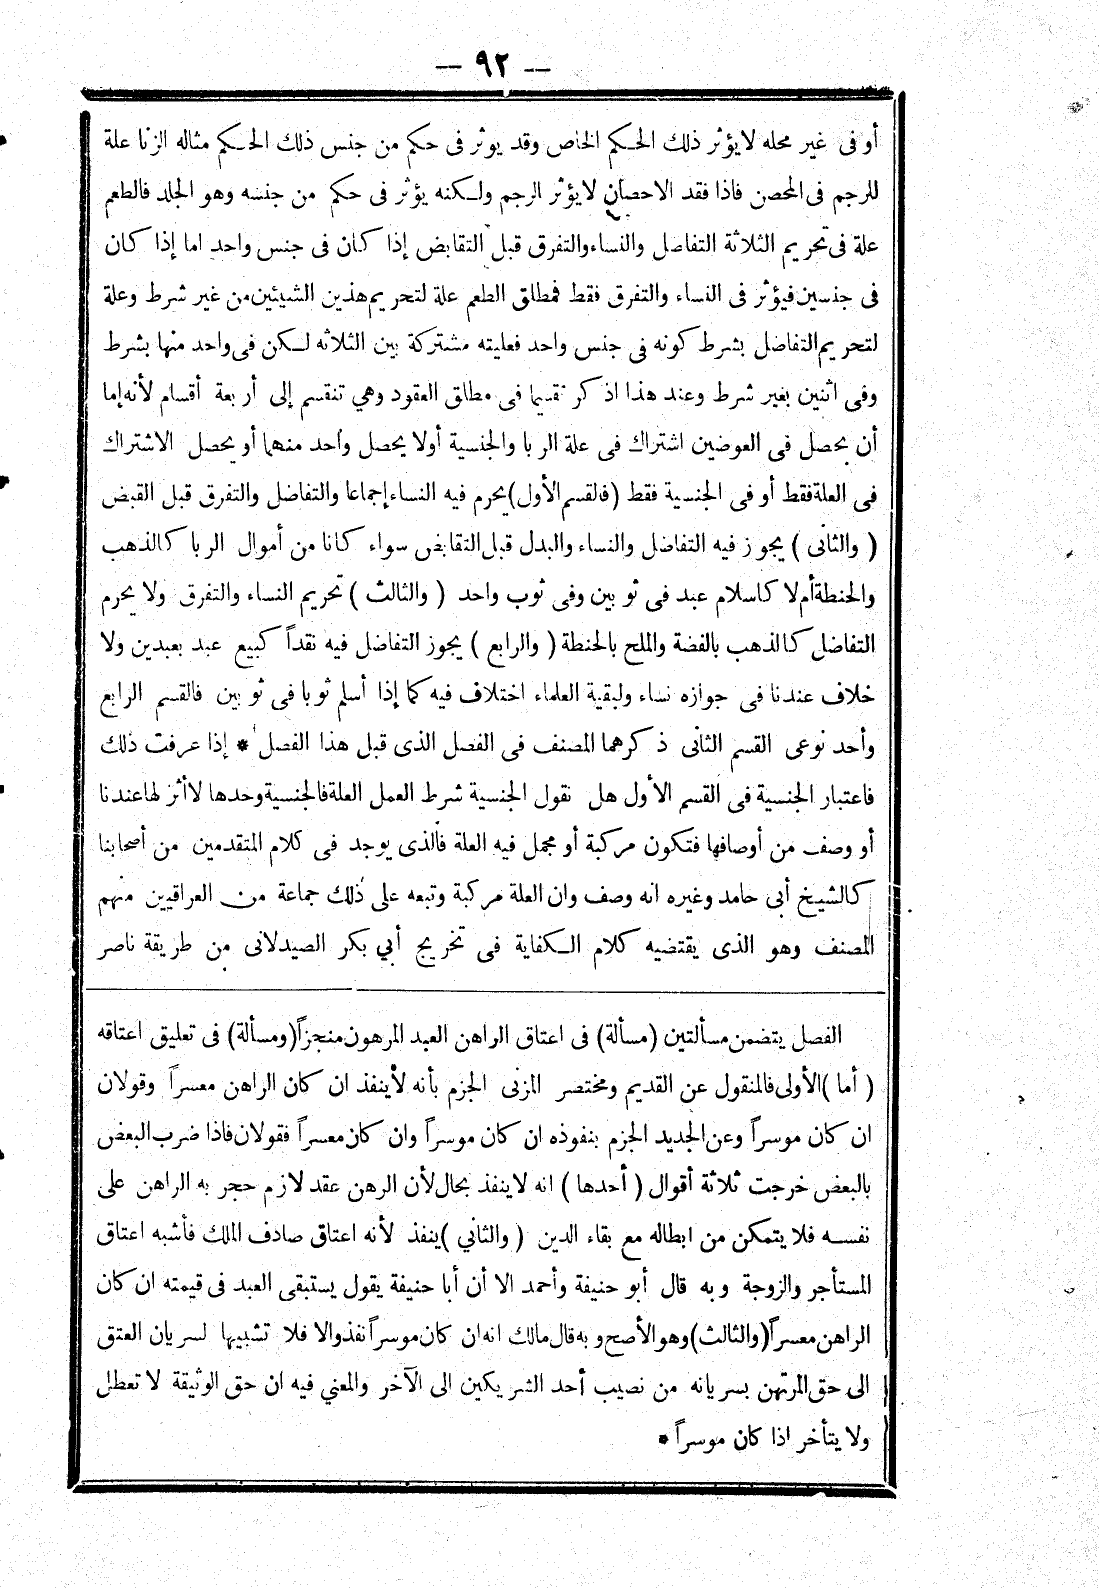 — ٩٢ —
أو فى غير محله لا يؤثر ذلك الحكم الخاص وقد يؤثر فى حكم من جنس ذلك الحكم مثاله الزنا علة
للرجم فى المحصن فاذا فقد الاحصان لا يؤثر الرجم ولكنه يؤثر فى حكم من جنسه وهو الجلد فالطعم
علة فى تحريم الثلاثة التفاضل والنساء والتفرق قبل التقابض إذا كان فى جنس واحد اما إذا كان
فى جنسين فيؤثر فى النساء والتفرق فقط فمطلق الطعم علة لتحريم هذين الشيئين من غير شرط وعلة
لتحريم التفاضل بشرط كونه فى جنس واحد فعليته مشتركة بين الثلاثه لكن فى واحد منها بشرط
وفى اثنين بغير شرط وعند هذا اذكر تقسيما فى مطلق العقود وهي تنقسم إلى أربعة أقسام لأنه إما
أن يحصل فى العوضين اشتراك فى علة الربا والجنسية أولا يحصل واحد منهما أو يحصل الاشتراك
فى العلة فقط أو فى الجنسية فقط (فالقسم الأول) يحرم فيه النساء إجماعا والتفاضل والتفرق قبل القبض
( والثانى ) يجوز فيه التفاضل والنساء والبدل قبل التقابض سواء كانا من أموال الربا كالذهب
والحنطة أم لا كاسلام عبد فى ثوبين وفى ثوب واحد ( والثالث ) تحريم النساء والتفرق ولا يحرم
التفاضل كالذهب بالفضة والملح بالحنطة ( والرابع ) يجوز التفاضل فيه نقداً كبيع عبد بعبدين ولا
خلاف عندنا فى جوازه نساء ولبقية العلماء اختلاف فيه كما إذا أسلم ثوبا فى ثوبين فالقسم الرابع
وأحد نوعى القسم الثانى ذكرهما المصنف فى الفصل الذى قبل هذا الفصل * إذا عرفت ذلك
فاعتبار الجنسية فى القسم الأول هل نقول الجنسية شرط العمل العلة فالجنسية وحدها لا أثر لها عندنا
أو وصف من أوصافها فتكون مركبة أو مجمل فيه العلة فالذى يوجد فى كلام المتقدمين من أصحابنا
كالشيخ أبى حامد وغيره انه وصف وان العلة مركبة وتبعه على ذلك جماعة من العراقيين منهم
المصنف وهو الذى يقتضيه كلام الكفاية فى تخريج أبي بكر الصيدلانى من طريقة ناصر
الفصل يتضمن مسألتين (مسألة) فى اعتاق الراهن العبد المرهون منجزاً (ومسألة) فى تعليق اعتاقه
( أما ) الأولى فالمنقول عن القديم ومختصر المزنى الجزم بأنه لا ينفذ ان كان الراهن معسراً وقولان
ان كان موسراً وعن الجديد الجزم بنفوذه ان كان موسراً وان كان معسراً فقولان فاذا ضرب البعض
بالبعض خرجت ثلاثة أقوال ( أحدها ) انه لا ينفذ بحال لأن الرهن عقد لازم حجر به الراهن على
نفسه فلا يتمكن من ابطاله مع بقاء الدين ( والثاني ) ينفذ لأنه اعتاق صادف الملك فأشبه اعتاق
المستأجر والزوجة وبه قال أبو حنيفة وأحمد الا أن أبا حنيفة يقول يستبقى العبد فى قيمته ان كان
الراهن معسراً (والثالث) وهو الأصح وبه قال مالك انه ان كان موسراً نفذ والا فلا تشبيها لسريان العتق
الى حق المرتهن بسريانه من نصيب أحد الشريكين الى الآخر والمعني فيه ان حق الوثيقة لا تعطل
ولا يتأخر اذا كان موسراً *